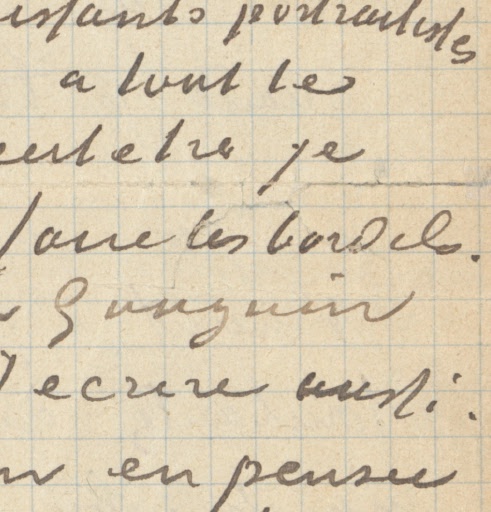 istants portraitistes
a tout le
peutetre je
faire les bordels.
Gauguin
ecrire aussi.
en pensee